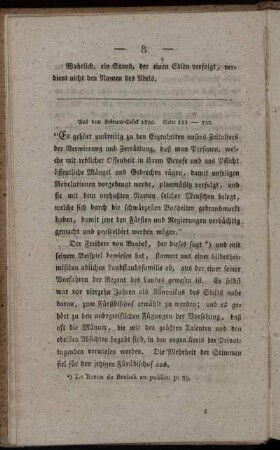 — 8 —
Wahrlich, ein Stand, der einen Edlen verfolgt, ver-
dient nicht den Namen des Adels.
Aus dem Februar-Stück 1800. Seite 111 — 121.
"Es gehört unstreitig zu den Eigenheiten unsers Zeitalters
der Verwirrung und Zerrüttung, daß man Personen, wel-
che mit redlicher Offenheit in ihrem Berufe und aus Pflicht
öffentliche Mängel und Gebrechen rügen, damit unseligen
Revolutionen vorgebeugt werde, planmäßig verfolgt, und
sie mit dem verhaßten Namen solcher Menschen belegt,
welche sich durch die schwärzesten Bosheiten gebrandmarkt
haben, damit jene den Fürsten und Regierungen verdächtig
gemacht und proscribiert werden mögen."
"Der Freiherr von Brabek, der dieses sagt *) und mit
seinem Beispiel bewiesen hat, stammt aus einer hildeshei-
mischen adlichen Landstandsfamilie ab, aus der einer seiner
Vorfahren der Regent des Landes gewesen ist. Er selbst
war vor vierzehn Jahren als Kanonikus des Stifts nahe
daran, zum Fürstbischof gewählt zu werden; und es ge-
hört zu den unbegreiflichen Fügungen der Vorsehung, daß
oft die Männer, die mit den größten Talenten und den
edelsten Absichten begabt sind, in den engen Kreis der Privat-
tugenden verwiesen werden. Die Mehrheit der Stimmen
fiel für den jetzigen Fürstbischof aus.
*) Le Baron de Brabek au public. p. 59.